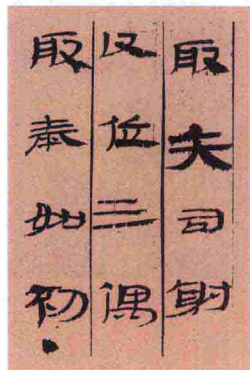 取矢司射
反位三偶
取奉如初●